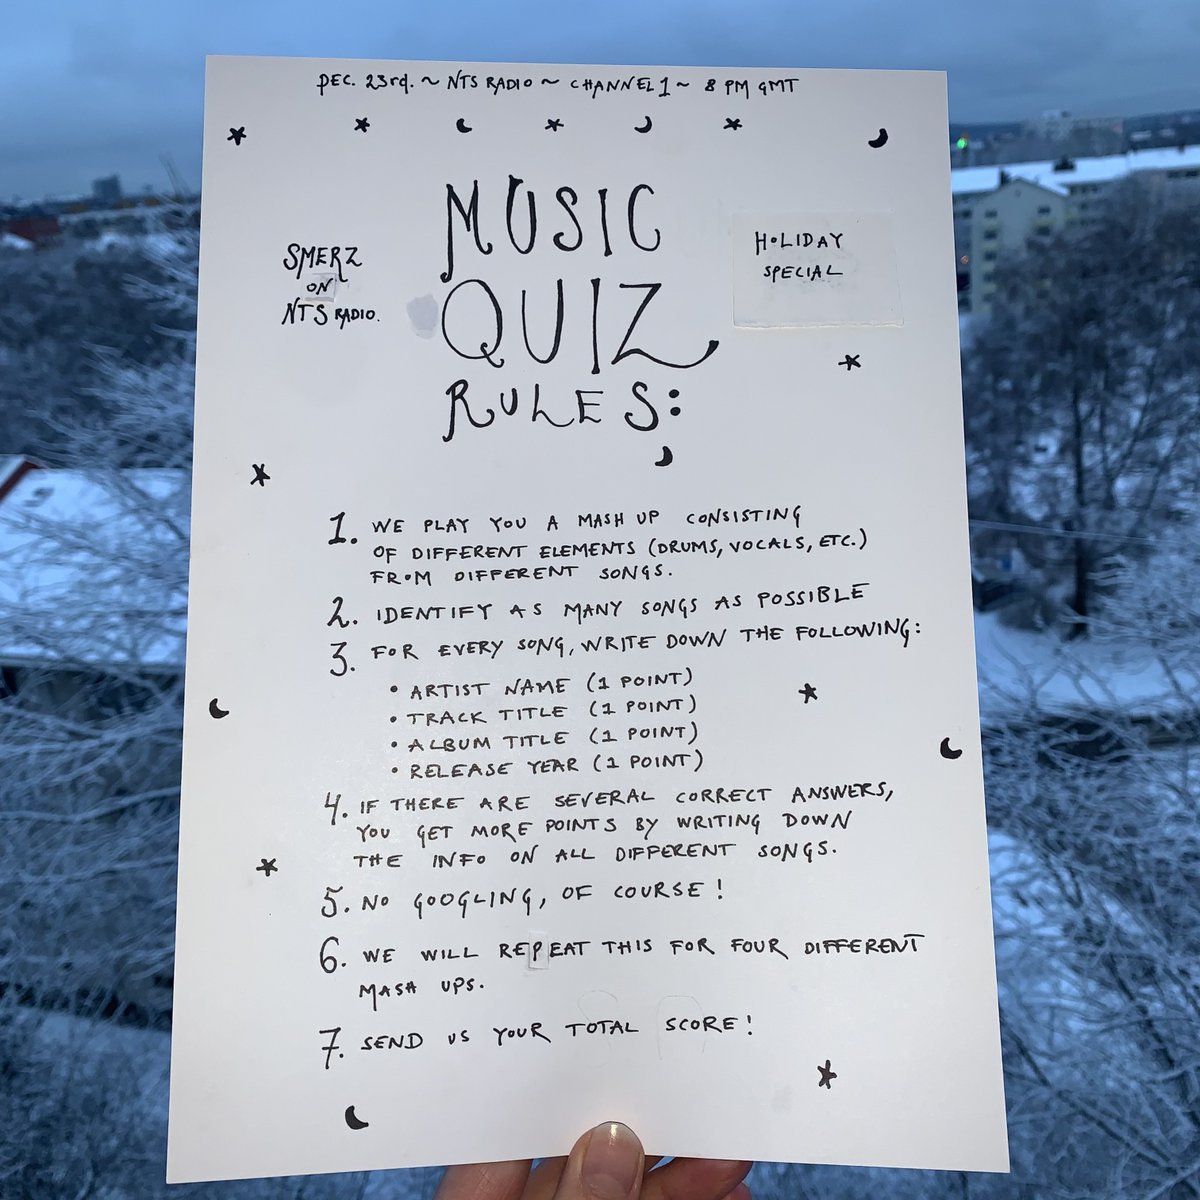 DEC. 23rd. ~ NTS RADIO ~ CHANNEL 1 ~ 8 PM GMT
MUSIC
QUIZ
RULES:
SMERZ
ON
NTS RADIO.
HOLIDAY
SPECIAL
1. WE PLAY YOU A MASH UP CONSISTING
OF DIFFERENT ELEMENTS (DRUMS, VOCALS, ETC.)
FROM DIFFERENT SONGS.
2. IDENTIFY AS MANY SONGS AS POSSIBLE
3. FOR EVERY SONG, WRITE DOWN THE FOLLOWING:
• ARTIST NAME (1 POINT)
• TRACK TITLE (1 POINT)
• ALBUM TITLE (1 POINT)
• RELEASE YEAR (1 POINT)
4. IF THERE ARE SEVERAL CORRECT ANSWERS,
YOU GET MORE POINTS BY WRITING DOWN
THE INFO ON ALL DIFFERENT SONGS.
5. NO GOOGLING, OF COURSE!
6. WE WILL REPEAT THIS FOR FOUR DIFFERENT
MASH UPS.
7. SEND US YOUR TOTAL SCORE!